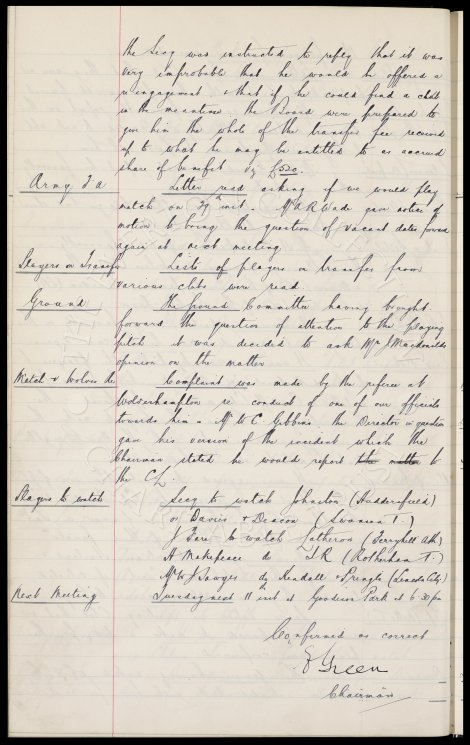 the Secy was instructed to reply that it was
very improbable that he would be offered a
re engagement & that if he could find a club
in the meantime the Board were prepared to
give him the whole of the transfer fee received
up to what he may be entitled to as accrued
share of benefit viz £520.
Army F A
Letter read asking if we would play
match on inst. Mr A R Wade gave notice of
motion to bring the question of vacant dates forward
again at next meeting
Players on Transfer
Lists of players on transfer from
various clubs were read
Ground
The Ground Committee having brought
forward the question of attention to the playing
pitch it was decided to ask Mr J Macdonalds
opinion on the matter
Match v Wolves
Complaint was made by the referee at
Wolverhampton re conduct of one of our officials
towards him & Mr W C Gibbins the Director in question
gave his version of the incident which the
Chairman stated he would report the matter to
the
Players to watch
Secy to watch Johnston (Huddersfield)
or Davies & Deacon (Swansea T.)
J Fare to watch Latheron (Ferryhill Ath)
A Makepeace do (Rotherham T.)
Mr W J Sawyer do Kendall & Pringle (Lincoln City)
Next Meeting
Tuesday next 11th inst at Goodison Park at 6-30 pm
Confirmed as correct
E Green
Chairman